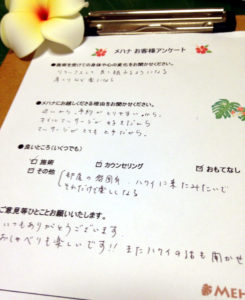 メハナ お客様アンケート
●施術を受けての身体や心の変化をお聞かせください。
リラックスして
●メハナにお越しくださる理由をお聞かせください。
近いから、予約がとりやすいから。
オイルマッサージが好きだから
マッサージがとても上手だから。
●良いところ（いくつでも）
施術 カウンセリング おもてなし
その他 （お店の雰囲気、ハワイに来たみたいで
それだけで楽しくなる
ご意見等ひとことお願いいたします。
いつもありがとうございます。
おしゃべりも楽しいです!! またハワイの話も聞かせ
MEH